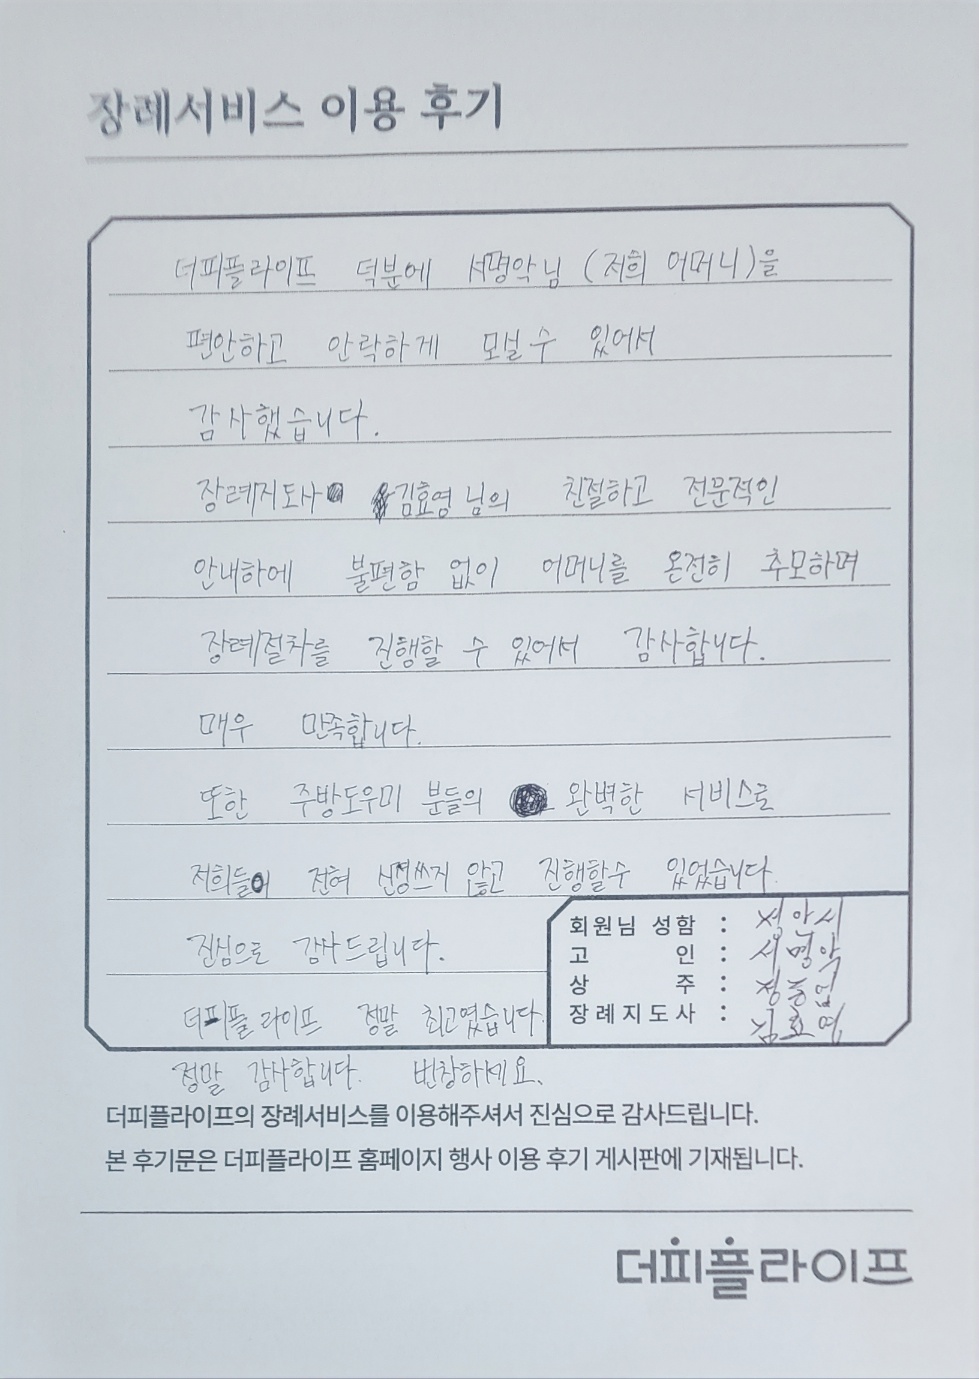 장례서비스 이용 후기
더피플라이프 덕분에 서명악님 (저희 어머니)을
편안하고 안락하게 모실 수 있어서
감사했습니다.
장례지도사 김효영 님의 친절하고 전문적인
안내하에 불편함 없이 어머니를 온전히 추모하며
장례절차를 진행할 수 있어서 감사합니다.
매우 만족합니다.
또한 주방도우미 분들의 완벽한 서비스로
저희들이 전혀 신경쓰지 않고 진행할수 있었습니다.
진심으로 감사드립니다.
더피플라이프 정말 최고였습니다.
정말 감사합니다. 번창하세요.
회원님 성함 :
고 인 : 서명악
상 주 :
장례지도사 : 김효영
더피플라이프의 장례서비스를 이용해주셔서 진심으로 감사드립니다.
본 후기문은 더피플라이프 홈페이지 행사 이용 후기 게시판에 기재됩니다.
더피플라이프